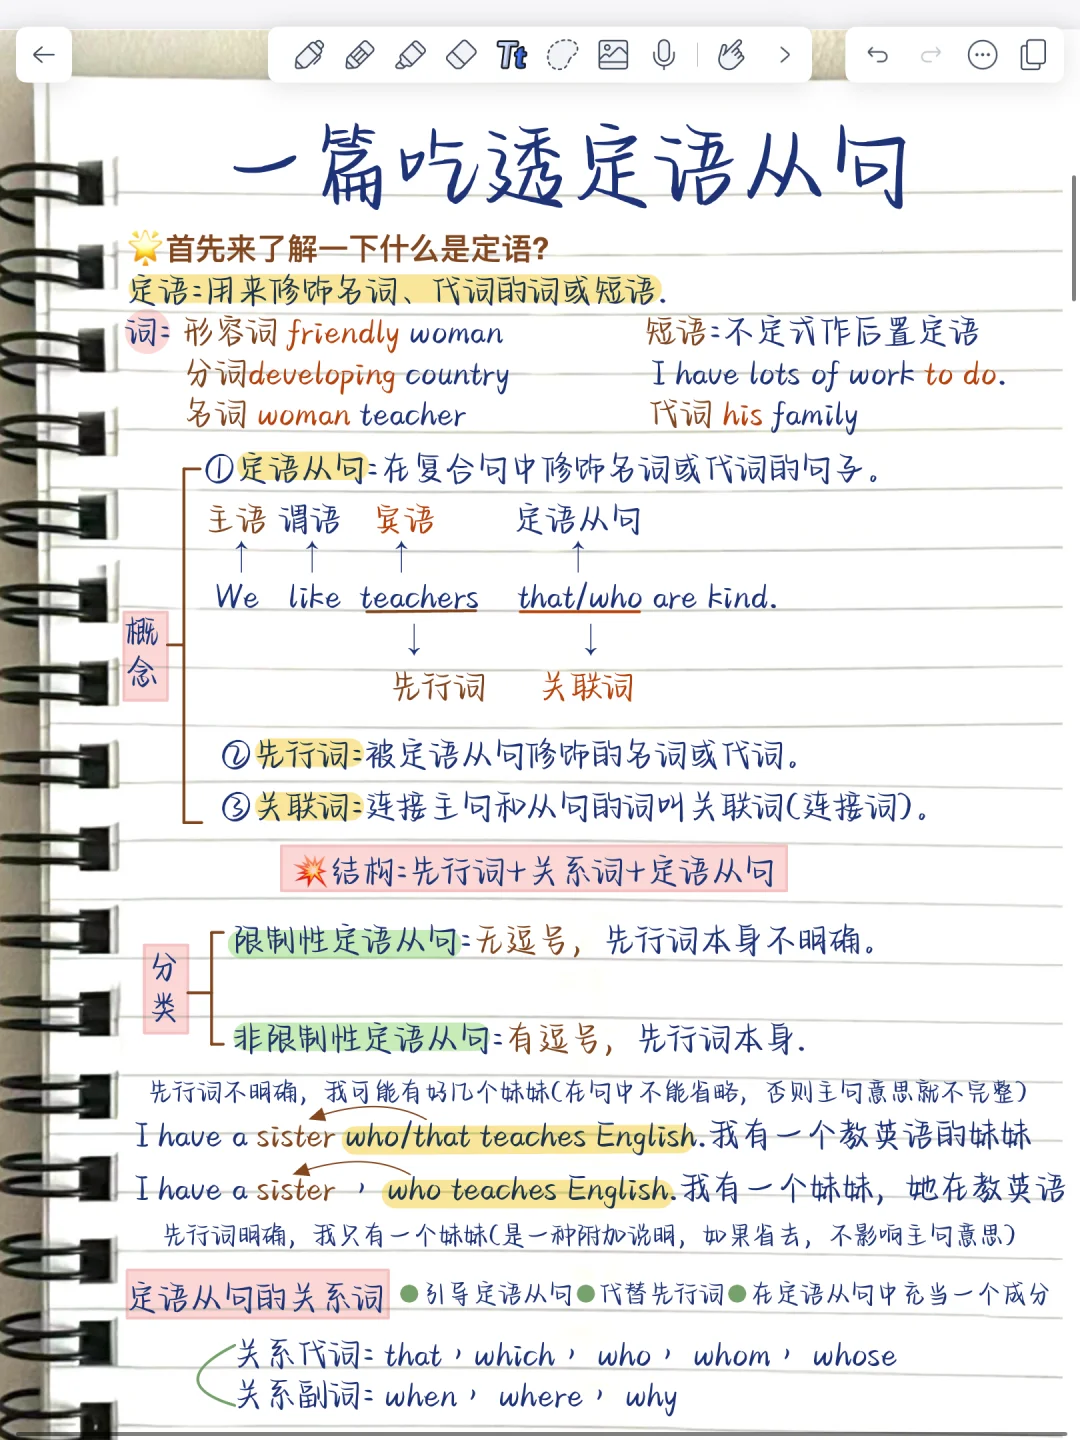 Tt
一篇吃透定语从句
🌟首先来了解一下什么是定语?
定语:用来修饰名词、代词的词或短语.
词: 形容词 friendly woman 短语:不定式作后置定语
分词developing country I have lots of work to do.
名词 woman teacher 代词 his family
①定语从句:在复合句中修饰名词或代词的句子。
主语 谓语 宾语 定语从句
↑ ↑ ↑ ↑
We like teachers that/who are kind.
↓ ↓
概念
先行词 关联词
②先行词:被定语从句修饰的名词或代词。
③关联词:连接主句和从句的词叫关联词(连接词)。
💥结构:先行词+关系词+定语从句
分类
限制性定语从句:无逗号，先行词本身不明确。
非限制性定语从句:有逗号，先行词本身.
先行词不明确，我可能有好几个妹妹(在句中不能省略，否则主句意思就不完整)
I have a sister who/that teaches English.我有一个教英语的妹妹
I have a sister ，who teaches English.我有一个妹妹，她在教英语
先行词明确，我只有一个妹妹(是一种附加说明，如果省去，不影响主句意思)
定语从句的关系词 ●引导定语从句●代替先行词●在定语从句中充当一个成分
关系代词: that，which，who，whom，whose
关系副词: when，where，why